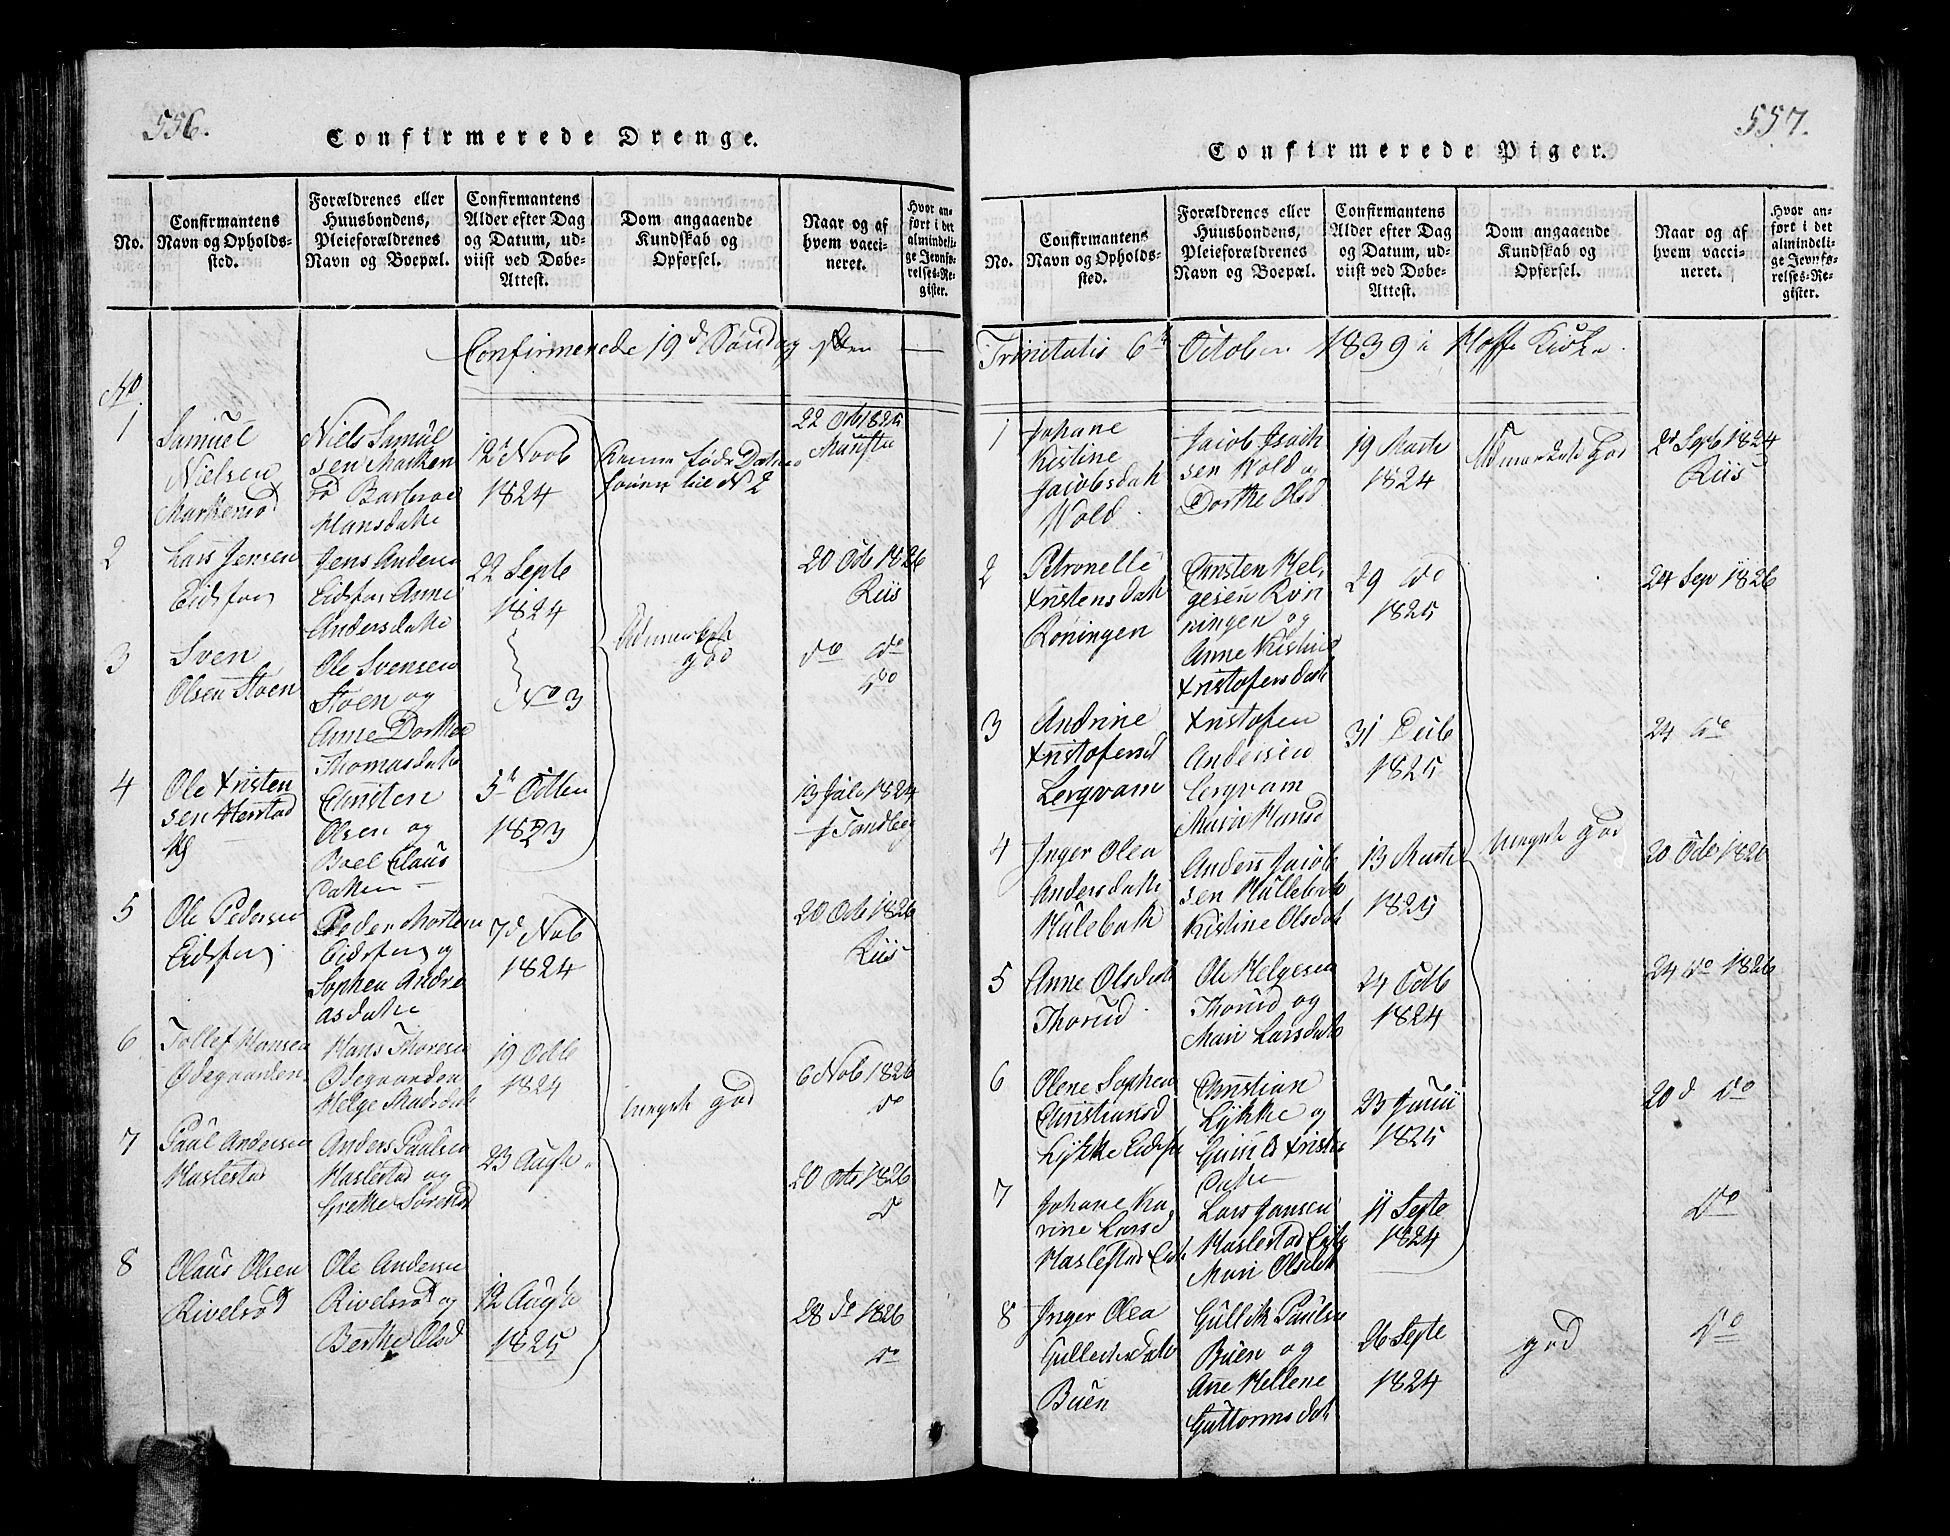 556.
Confirmerede Drenge.
No.
Confirmantens
Navn og Opholds-
sted.
Forældrenes eller
Huusbondens,
Pleieforældrenes
Navn og Boepæl.
Confirmantens
Alder efter Dag
og Datum, ud-
viist ved Døbe-
Attest.
Dom angaaende
Kundskab og
Opførsel.
Naar og af
hvem vacci-
neret.
Hvor an-
ført i det
almindeli-
ge Jevnfø-
relses-Re-
gister.
Confirmerede 19d Søndag
No
1
Samuel
Nielsen
Markerød
Niels Samuel
sen Marken
Hansdatte
12 Novb
1824
til No 2
22 Octb 1825
2
Lars Jensen
Eidsfos
Jens Anders
Eidsfos Anne
Andersdatte
22 Septe
1824
20 Octb 1826
Riis
3
Sven
Olsen Stoen
Ole Svensen
Stoen og
Anne Dorthe
Thomasdatte
No 3
Udmærket
god
do do
do
4
Ole Kristen
sen Herstad
Christen
Olsen og
Boel Claus
datter
5t
1823
13 Juli 1824
Tandberg
5
Ole Pedersen
Eidsfos
Peder Mortens
Eidsfos og
Sophea Andre
asdatte
7d Novb
1824
20 Octb 1826
Riis
6
Tollef Hansen
Ødegaarden
Hans Thoresen
Ødegaarden
Helge
19 Octb
1824
meget god
6 Novb 1826
do
7
Paul Andersen
Haslestad
Anders Paulsen
Haslestad og
Grethe Sørensd
23 Augst
20 Octb 1826
do
8
Olaus Olsen
Rivelsrød
Ole Anderse
Rivelsrød og
Berthe Olsd
12 Augst
1825
28 do 1826
do
557.
Confirmerede Piger.
No.
Confirmantens
Navn og Opholds-
sted.
Forældrenes eller
Huusbondens,
Pleieforældrenes
Navn og Boepæl.
Confirmantens
Alder efter Dag
og Datum, ud-
viist ved Døbe-
Attest.
Dom angaaende
Kundskab og
Opførsel.
Naar og af
hvem vacci-
neret.
Hvor an-
ført i det
almindeli-
ge Jevnfø-
relses-Re-
gister.
Trinitatis 6te October 1839 i Hoffs Kirke.
1
Johane
Kistine
Jacobsdatt
Wold
Jacob Isach
sen Wold og
Dorthe Olsd
19 Marts
1824
Udmærket God
Septb 1824
Riis
2
Petronelle
Kristensdatt
Røningen
Christen Hel,
gesen Røn
ningen og
Anne Kistine
Kristofersdatt
29 do
1825
24 Sep 1826
3
Andrine
Kristofersd
Lergvam
Kristofer
Andersen
Lergvam
Maria Hansd
31
1825
24 do
4
Inger Olea
Andersdatte
Hulebak
Anders Jacob
sen Hullebak
Kistine Olsdat
13 Marts
1825
meget god
20 Octb 1826
5
Anne Olsdatt
Thorud
Ole Helgesen
Thorud og
Mari Larsdatte
24 Octb
1824
24 do 1826
6
Olene Sophea
Christiansd
Lykke Eidsfos
Christian
Lykke og
Kristens
datte
23 Junii
1825
20d do
7
Johane Ka
rine Larsd
Haslestad
Lars Jansen
Haslestad
Mari Olsdatt
11 Septe
1824
do
8
Inger Olea
Gullecksdatt
Buen
Gullik Paulsen
Buen og
Ane Hellene
Guttormsdatt
26 Septe
1824
god
do